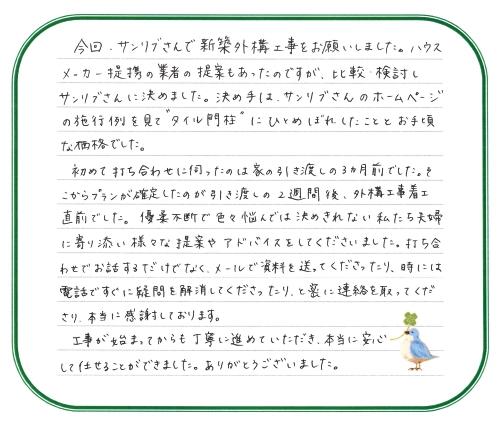 今回、サンリブさんで新築外構工事をお願いしました。ハウス
メーカー提携の業者の提案もあったのですが、比較・検討し
サンリブさんに決めました。決め手は、サンリブさんのホームページ
の施行例を見て"タイル門柱"にひとめぼれしたこととお手頃
な価格でした。
初めて打ち合わせに伺ったのは家の引き渡しの3ヵ月前でした。そ
こからプランが確定したのが引き渡しの2週間後、外構工事着工
直前でした。優柔不断で色々悩んでは決めきれない私たち夫婦
に寄り添い様々な提案やアドバイスをしてくださいました。打ち合
わせでお話するだけでなく、メールで資料を送ってくださったり、時には
電話ですぐに疑問を解消してくださったり、と密に連絡を取ってくだ
さり、本当に感謝しております。
工事が始まってからも丁寧に進めていただき、本当に安心
して任せることができました。ありがとうございました。